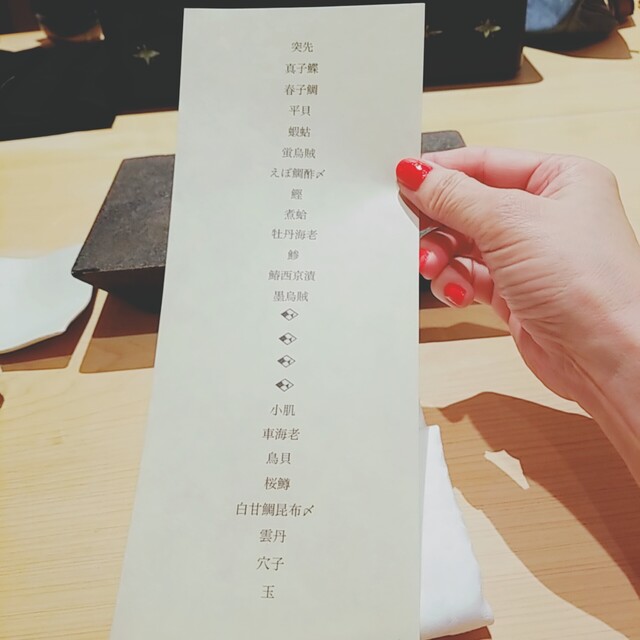 突先
真子鰈
春子鯛
平貝
蝦蛄
蛍烏賊
えぼ鯛酢〆
鰹
煮蛤
牡丹海老
鯵
鰆西京漬
墨烏賊
小肌
車海老
鳥貝
桜鱒
白甘鯛昆布〆
雲丹
穴子
玉